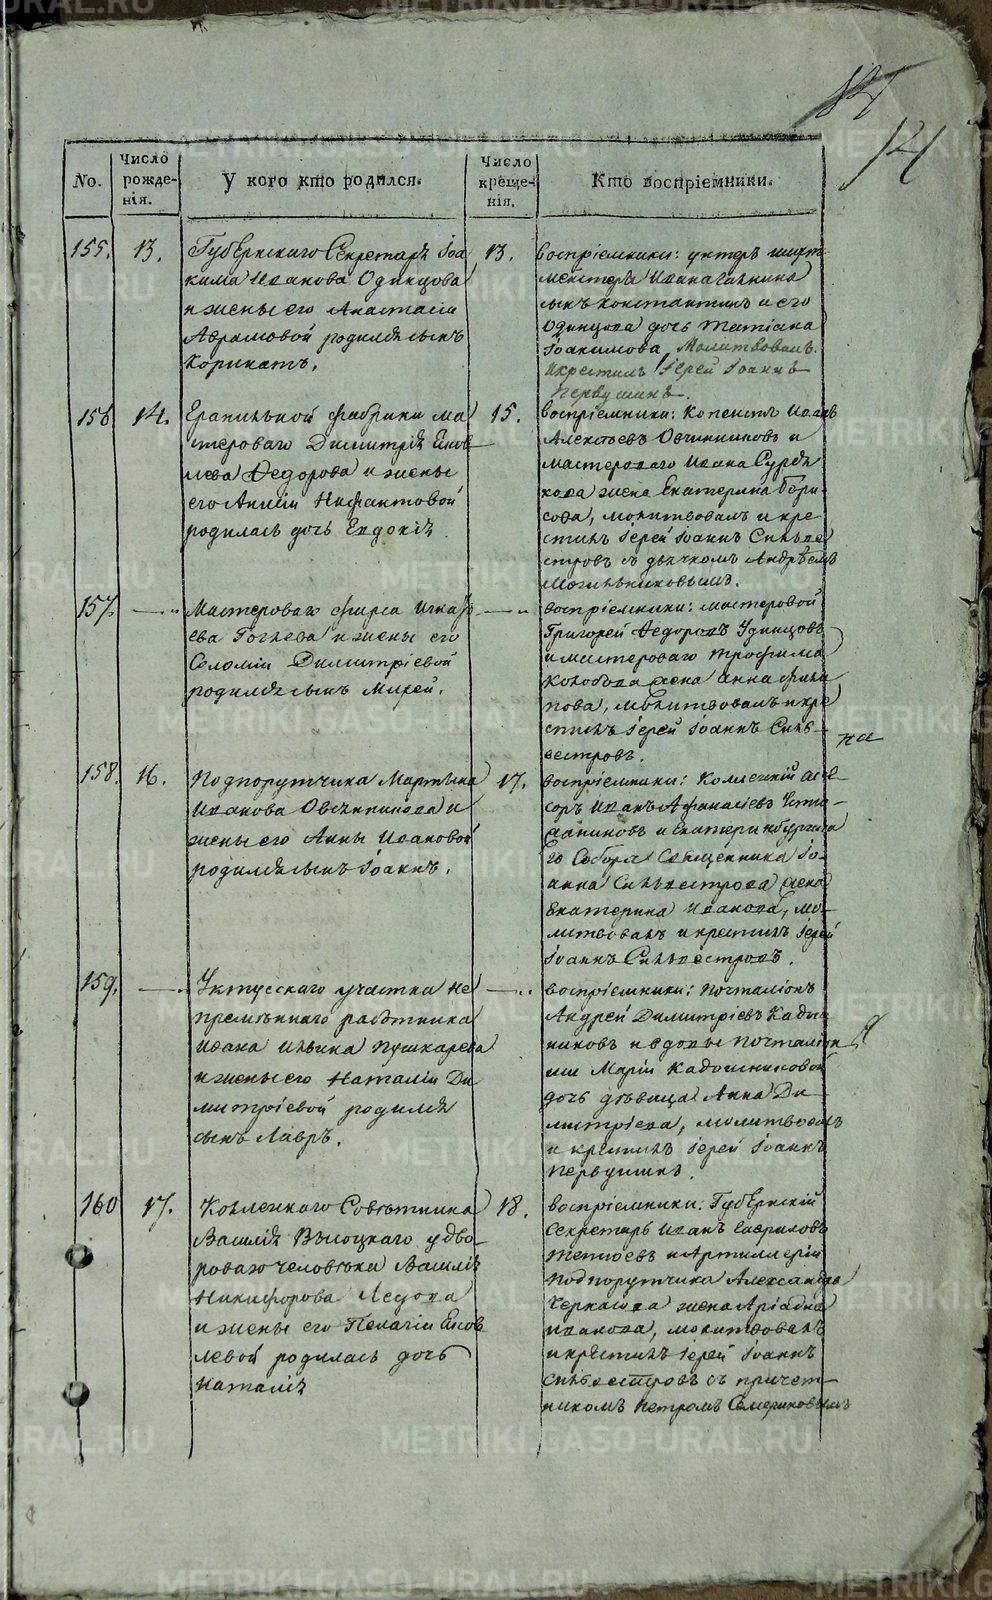 121
No.
Число рожде- нія.
У кого кто родился.
Число креще- нія.
Кто воспріемники.
155.
13.
Губернскаго Секретаря Іоа
кима Иванова Одинцова
и жены его Анастасіи
Абрамовой родился сынъ
13.
воспріемники: унтеръ шихт
мейстера Ивана
сынъ Константинъ и его
Одинцова дочь Татіана
Іоакимова, Молитвовалъ
и крестилъ Іерей Іоаннъ
Первушинъ.
156
14.
фабрики ма
стероваго Димитрія Яков
лева Федорова и жены
его Нифантовой
родилась дочь Евдокія
15.
воспріемники: Копеистъ Иванъ
Алексѣевъ Овчинниковъ и
мастероваго Ивана
кова жена Екатерина Бори
сова, молитвовалъ и кре
стилъ Іерей Іоаннъ Сильве
стровъ съ дьячкомъ Андрѣемъ
Могильниковымъ.
157.
Мастероваго Игнать
ева и жены его
Соломіи Димитріевой
родился сынъ
воспріемники: мастеровой
Григорей Федоровъ Удинцовъ
и мастероваго Трофима
жена Анна Фили
пова, молитвовалъ и кре
стилъ Іерей Іоаннъ Силь
вестровъ.
158.
16.
Подпорутчика Мартына
Иванова Овчинникова и
жены его Анны Ивановой
родился сынъ Іоаннъ.
17.
воспріемники: Коллежкій асе
соръ Иванъ Афанасіевъ
и Екатеринбургска
го Собора Священника Іо
анна Сильвестрова жена
Екатерина Иванова, мо
литвовалъ и крестилъ Іерей
Іоаннъ Сильвестровъ.
159.
Уктусскаго участка не
премѣннаго работника
Ивана Ильина Пушкарева
и жены его Наталіи Ди
митріевой родился
сынъ Лавръ.
воспріемники: почталіонъ
Андрей Димитріевъ Кадош
никовъ и вдовы почталіон
ши Маріи Кадошниковой
дочь дѣвица Анна Ди
митріева, молитвовалъ
и крестилъ Іерей Іоаннъ
Первушинъ.
160
17.
Коллежкаго Совѣтника
Василія Высоцкаго у дво
роваго человѣка Василія
Никифорова
и жены его Пелагіи Яков
левой родилась дочь
Наталія
18.
воспріемники: Губернскій
Секретарь Иванъ Гавриловъ
и Артиллеріи
подпорутчика Александра
Черкасова жена Аріадна
Иванова, молитвовалъ
и крестилъ Іерей Іоаннъ
Сильвестровъ съ причет
никомъ Петромъ
METRIKI.GASO-URAL.RU